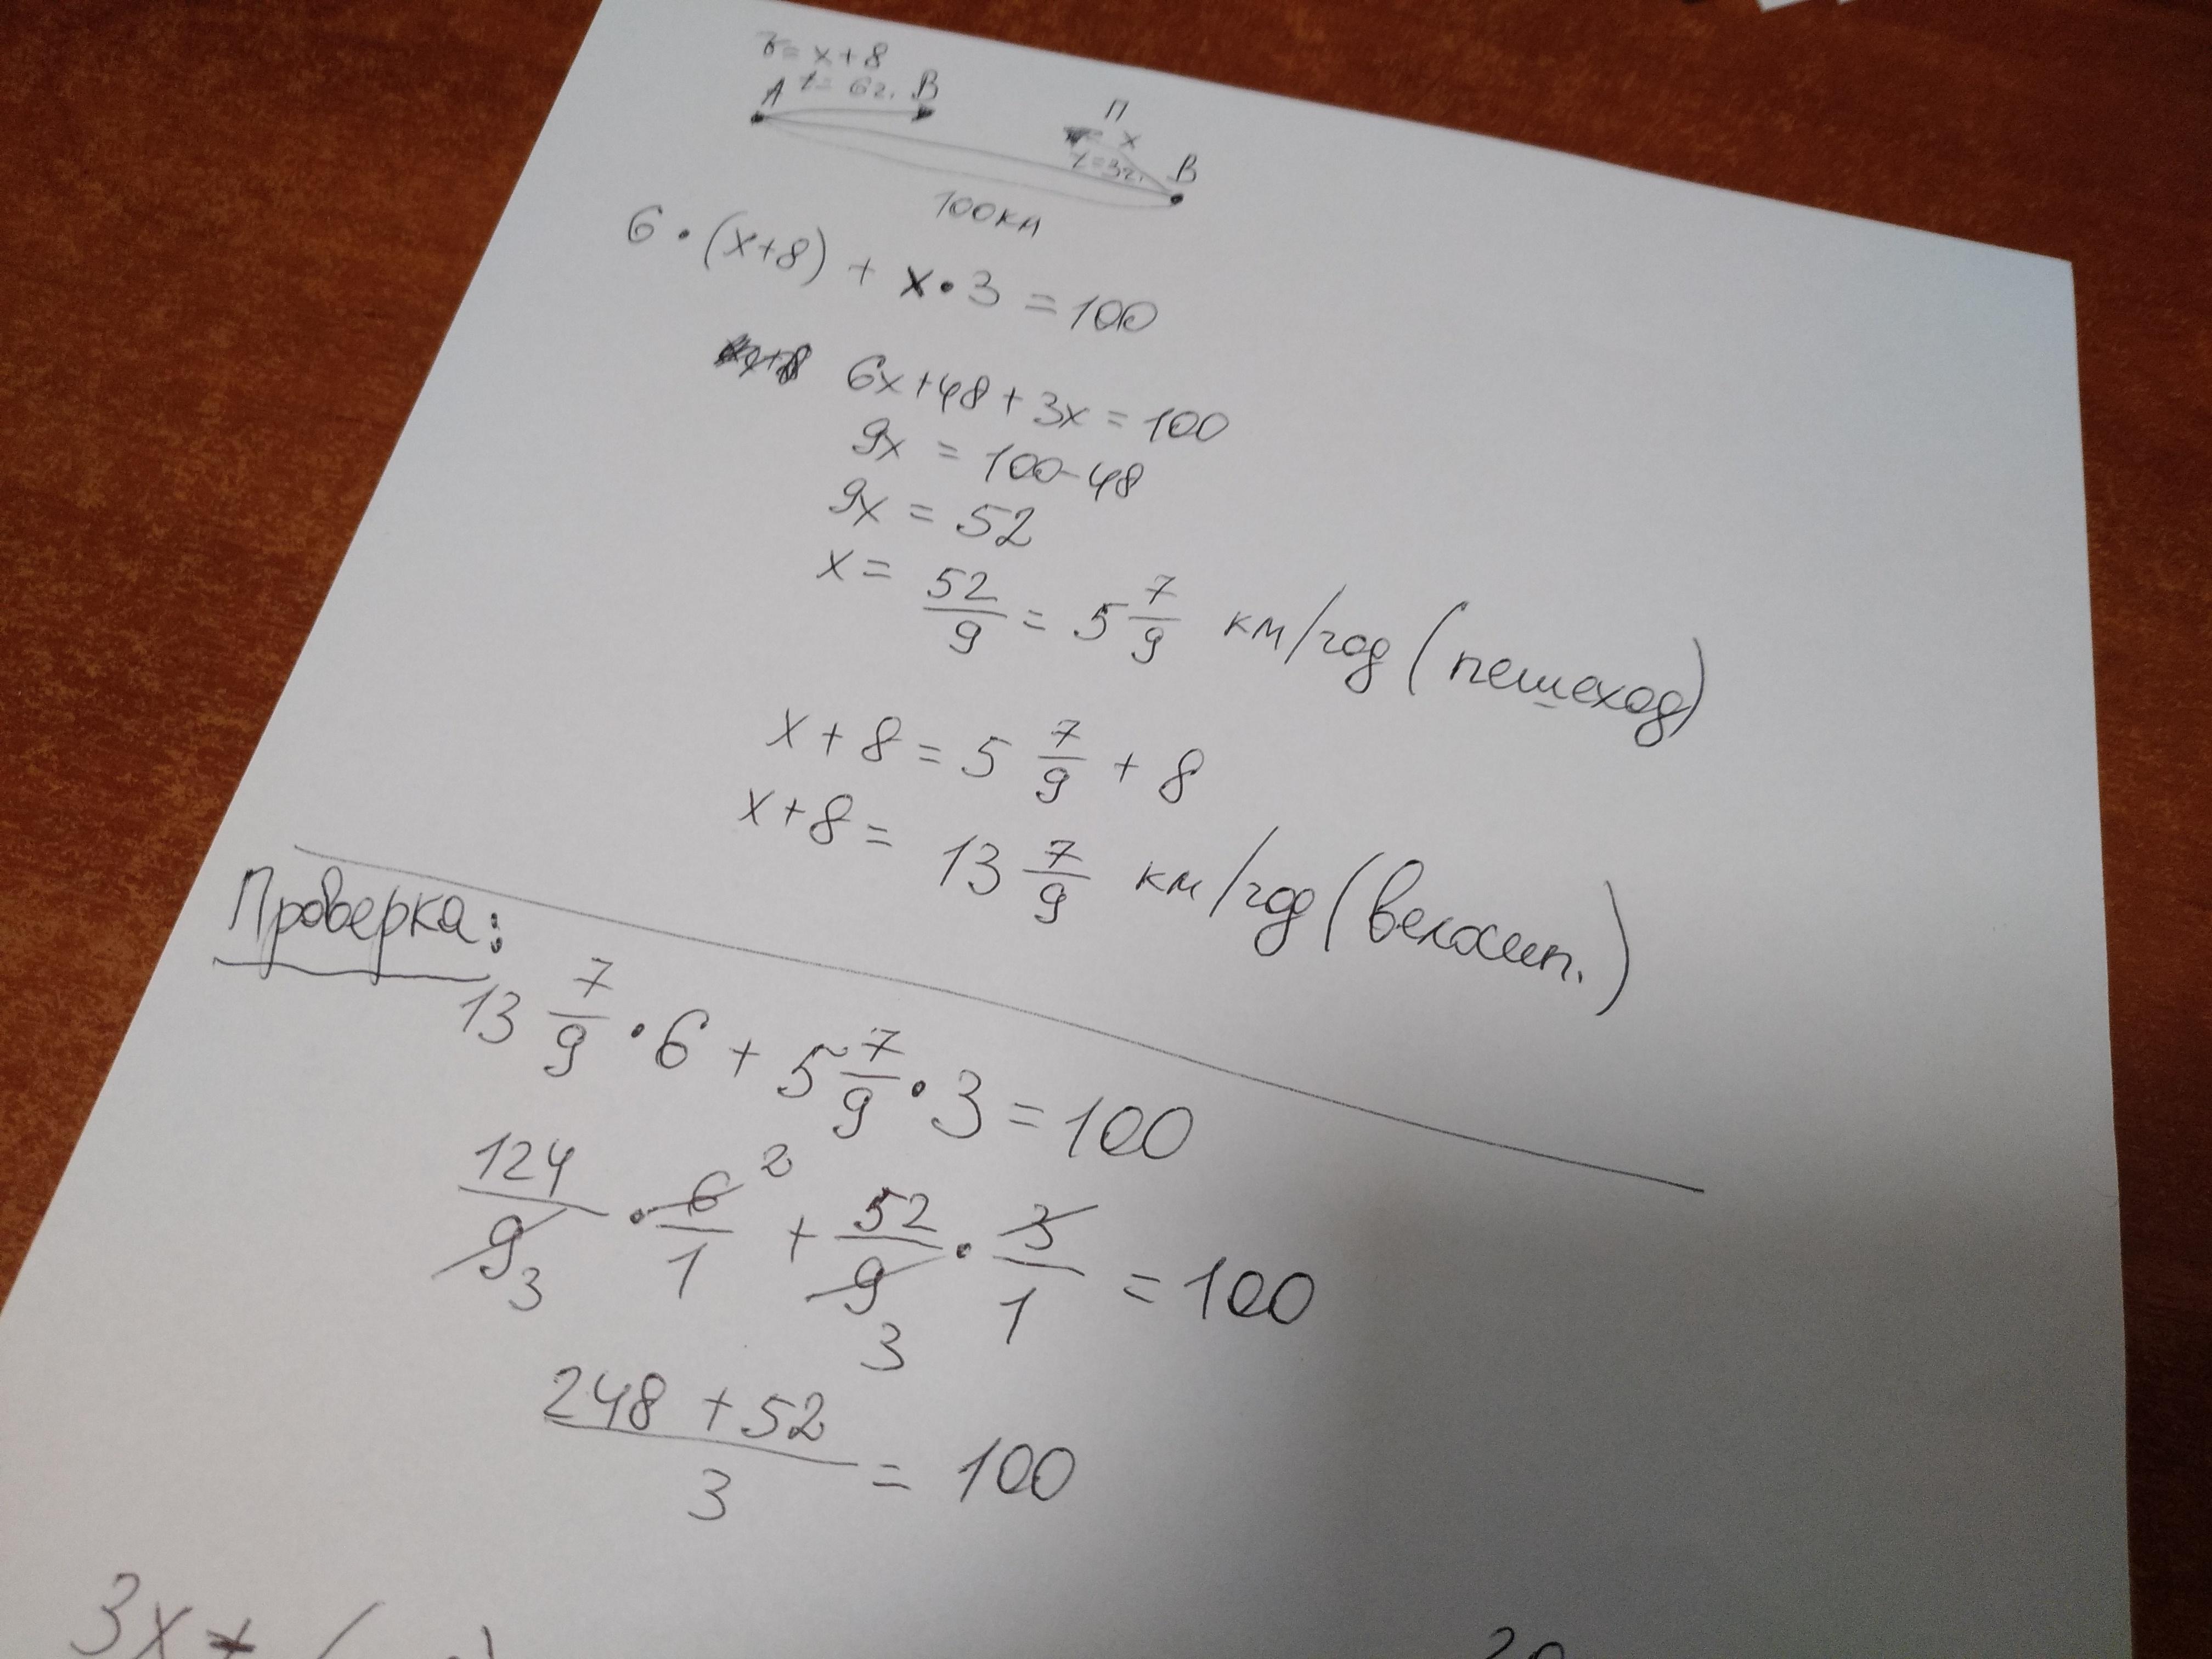 v = x + 8
t = 6г.
A B
П
x
t = 3г.
B
100 км
6 · (x+8) + x · 3 = 100
6x + 48 + 3x = 100
9x = 100 - 48
9x = 52
x = 52/9 = 5 7/9 км/год (пешеход)
x + 8 = 5 7/9 + 8
x + 8 = 13 7/9 км/год (велосип.)
Проверка:
13 7/9 · 6 + 5 7/9 · 3 = 100
124/9 3 · 6 2/1 + 52/9 3 · 3/1 = 100
248 + 52/3 = 100
3x +